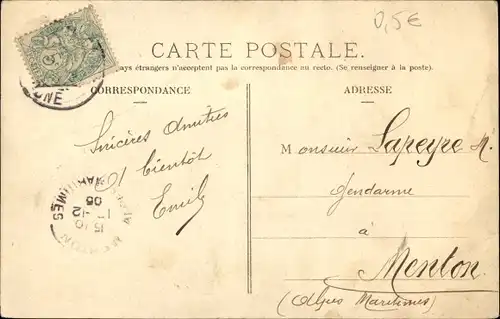 0,5€
CARTE POSTALE.
pays étrangers n'acceptent pas la correspondance au recto. (Se renseigner à la poste.)
CORRESPONDANCE
ADRESSE
Sincères Amitiés
bientôt
Emile
Monsieur Lapeyre R.
Gendarme
à
Menton
(Alpes Maritimes)
MENTON
ALPES MARITIMES
15 10
12
05